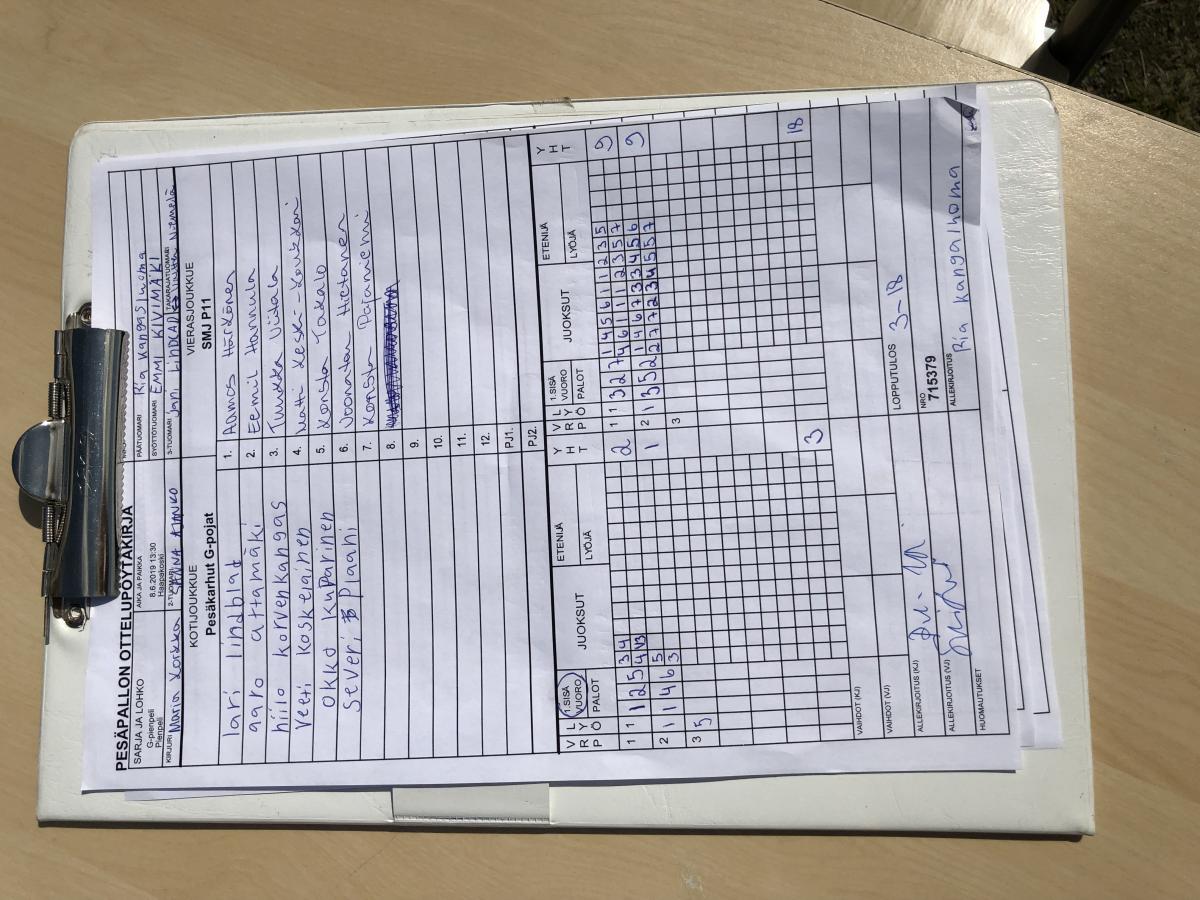 PESÄPALLON OTTELUPÖYTÄKIRJA
SARJA JA LOHKO
G-pienpeli
Pienpeli
AIKA JA PAIKKA
8.6.2019 13:30
Haapakoski
PÄÄTUOMARI Ria Kangasluoma
SYÖTTÖTUOMARI EMMI KIVIMÄKI
KIRJURI Maria Korkka
2-TUOMARI SANNA
3-TUOMARI Jari LINDBLAD
TAKARAJATUOMARI Niemelä
KOTIJOUKKUE
Pesäkarhut G-pojat
lari lindblad
aaro attamäki
hiilo korvenkangas
Veeti koskelainen
okko kuparinen
Severi Plaani
VIERASJOUKKUE
SMJ P11
1. Aamos Härkönen
2. Eemil Hannula
3. Tuukka Viitala
4. Matti Keski-Koukkari
5. Konsta Takalo
6. Joonatan Hietanen
7. Konsta Pajaniemi
8.
9.
10.
11.
12.
PJ1.
PJ2.
V R P L Y Ö 1.SISÄ VUORO PALOT JUOKSUT ETENIJÄ LYÖJÄ Y H T
1 1 1 2 5 3 4 2
2 1 1 4 6 5 3 1
3 5
3
V R P L Y Ö 1.SISÄ VUORO PALOT JUOKSUT ETENIJÄ LYÖJÄ Y H T
1 1 3 2 7 1 4 5 6 1 1 2 3 5 9
4 6 1 1 1 2 3 5 7
2 1 3 5 2 1 4 6 7 3 3 4 5 6 9
2 7 7 2 3 4 5 5 7
3
18
VAIHDOT (KJ)
VAIHDOT (VJ)
LOPPUTULOS 3-18
ALLEKIRJOITUS (KJ)
NRO
715379
ALLEKIRJOITUS (VJ)
ALLEKIRJOITUS Ria Kangasluoma
HUOMAUTUKSET